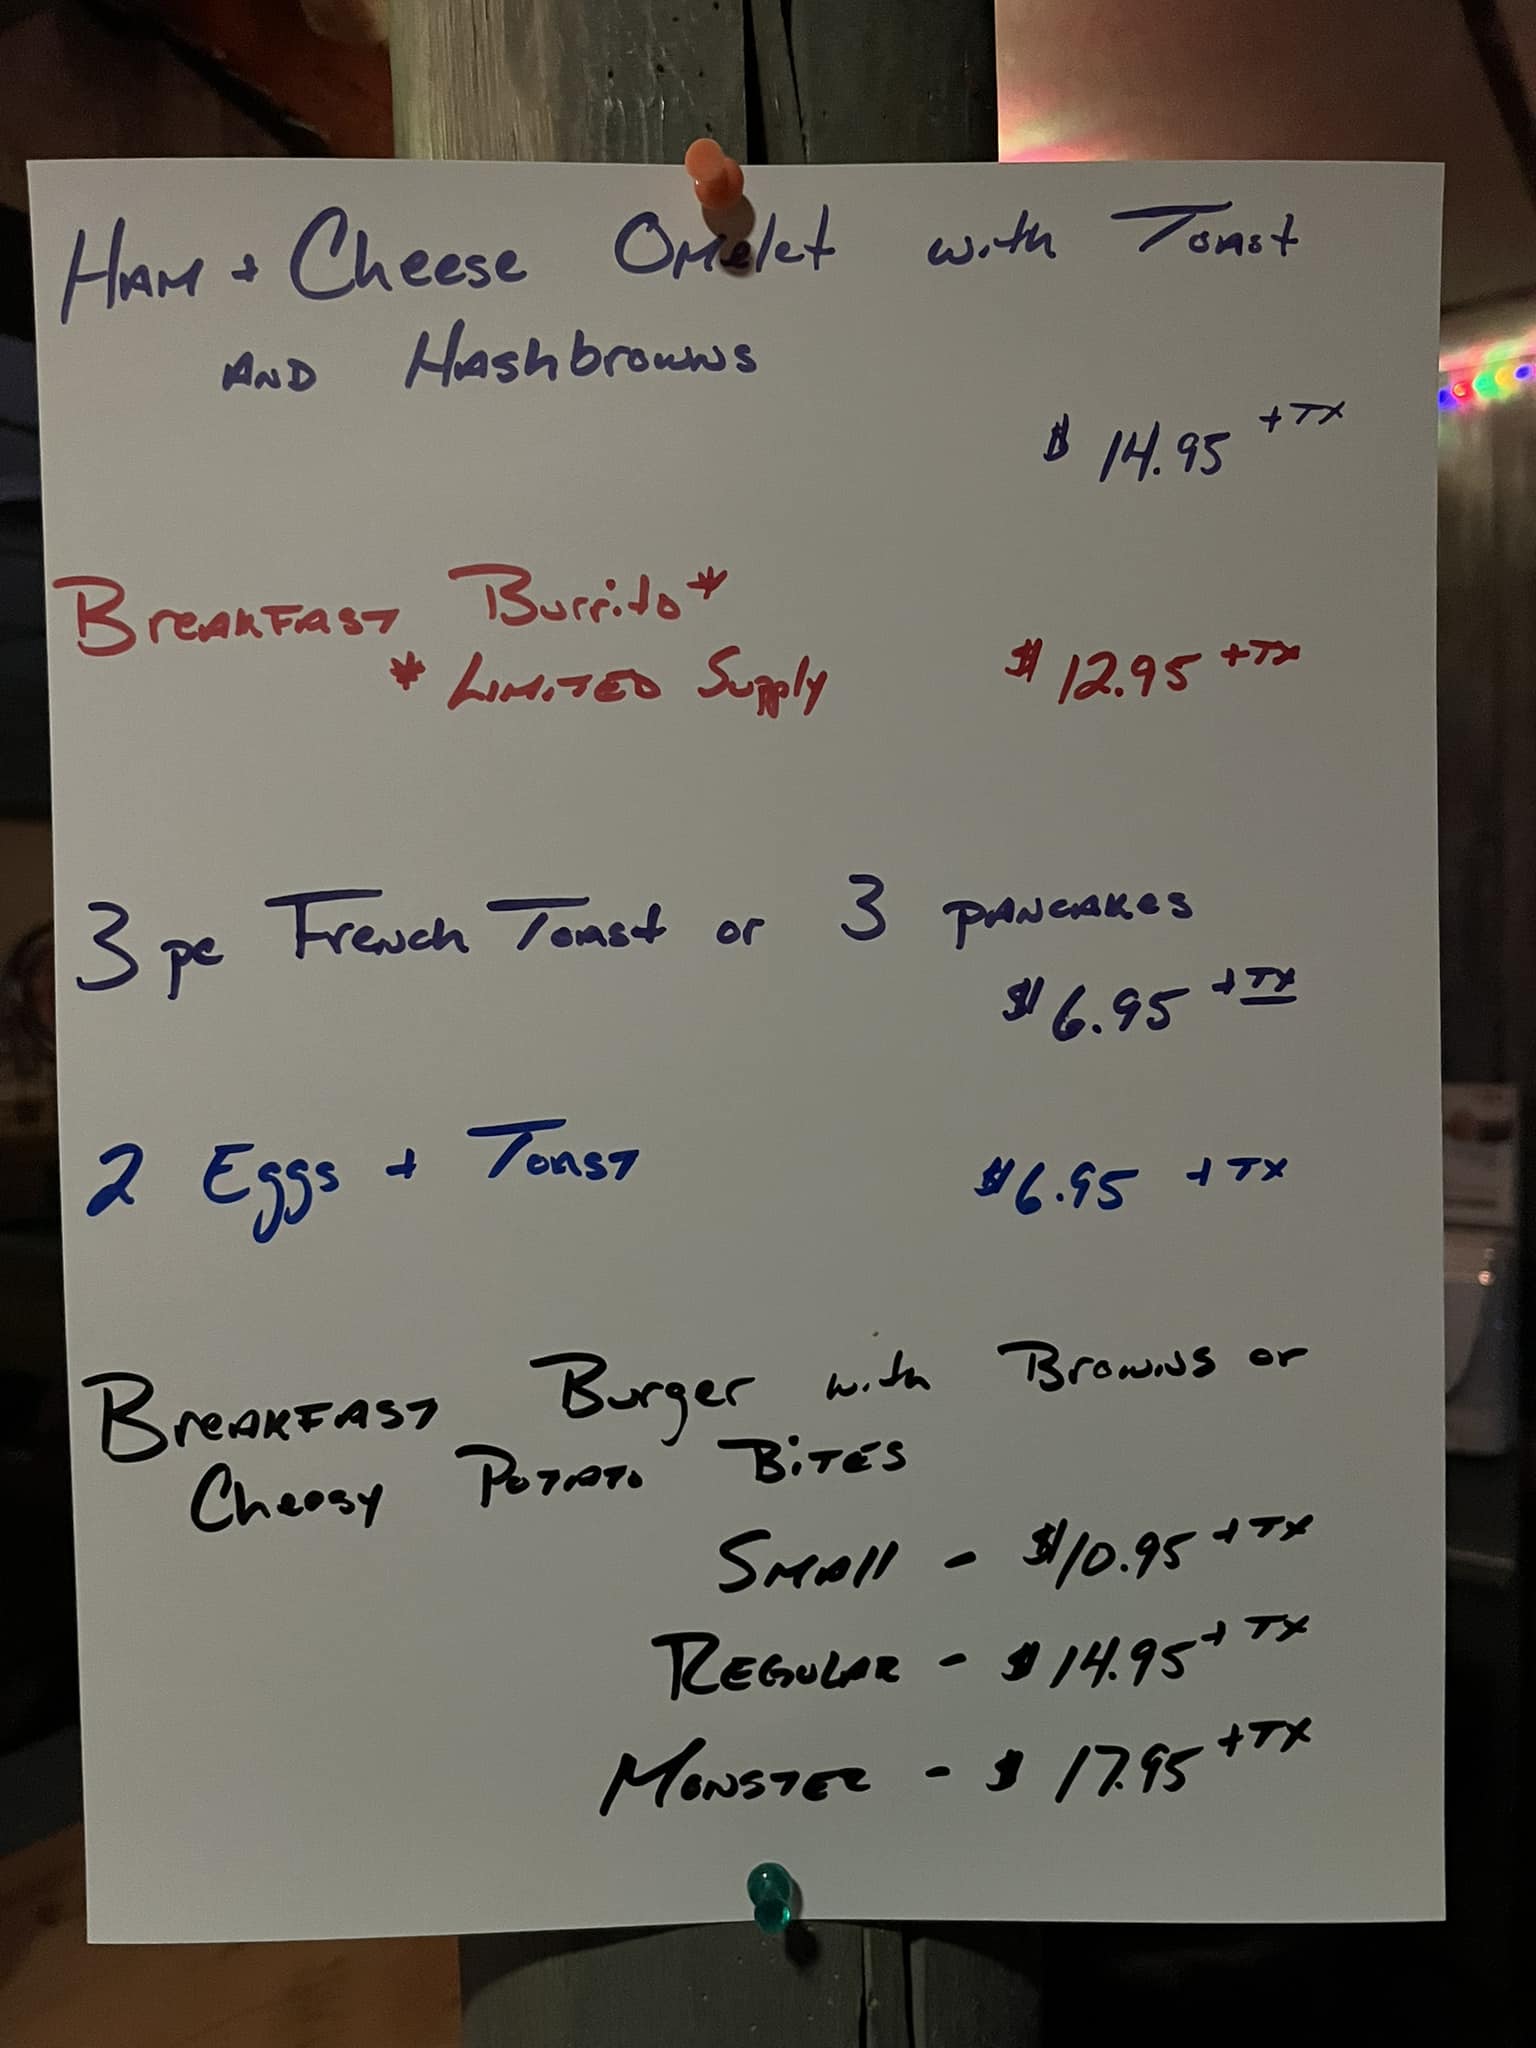 Ham + Cheese Omelet with Toast
and Hashbrowns
$ 14.95 +TX
Breakfast Burrito*
* Limited Supply $ 12.95 +TX
3 pc French Toast or 3 pancakes
$ 6.95 +TX
2 Eggs + Toast $6.95 +TX
Breakfast Burger with Browns or
Cheesy Potato Bites
Small - $10.95 +TX
Regular - $14.95 +TX
Monster - $ 17.95 +TX